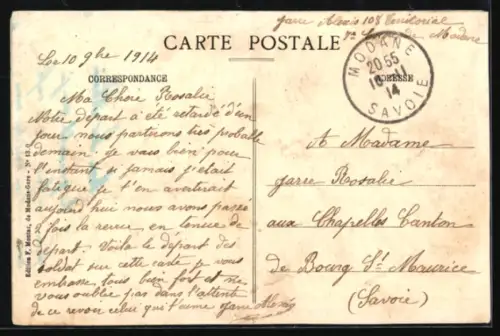 Jarre Alexis 108 Territorial
de Modane
Le 10 9bre 1914
CARTE POSTALE
MODANE
20 55
10 -11
14
SAVOIE
CORRESPONDANCE
ADRESSE
Ma Chère Rosalie
Notre départ a été retardé d'un
jour nous partirons très probable
demain. Je vais bien pour
l'instant si jamais j'était
fatigué je t'en avertirait
aujourd'hui nous avons passé
fois la revue en tenue de
départ. Voila le départ des
soldat sur cette carte je vous
embrasse tous bien fort et ne
vous oublie pas dans l'attente
de ce revoir celui qui t'aime Jarre Alexis
A Madame
Jarre Rosalie
aux Chapelles Canton
de Bourg St Maurice
(Savoie)
Edition F. Mottaz, de Modane-Gare - N° 13